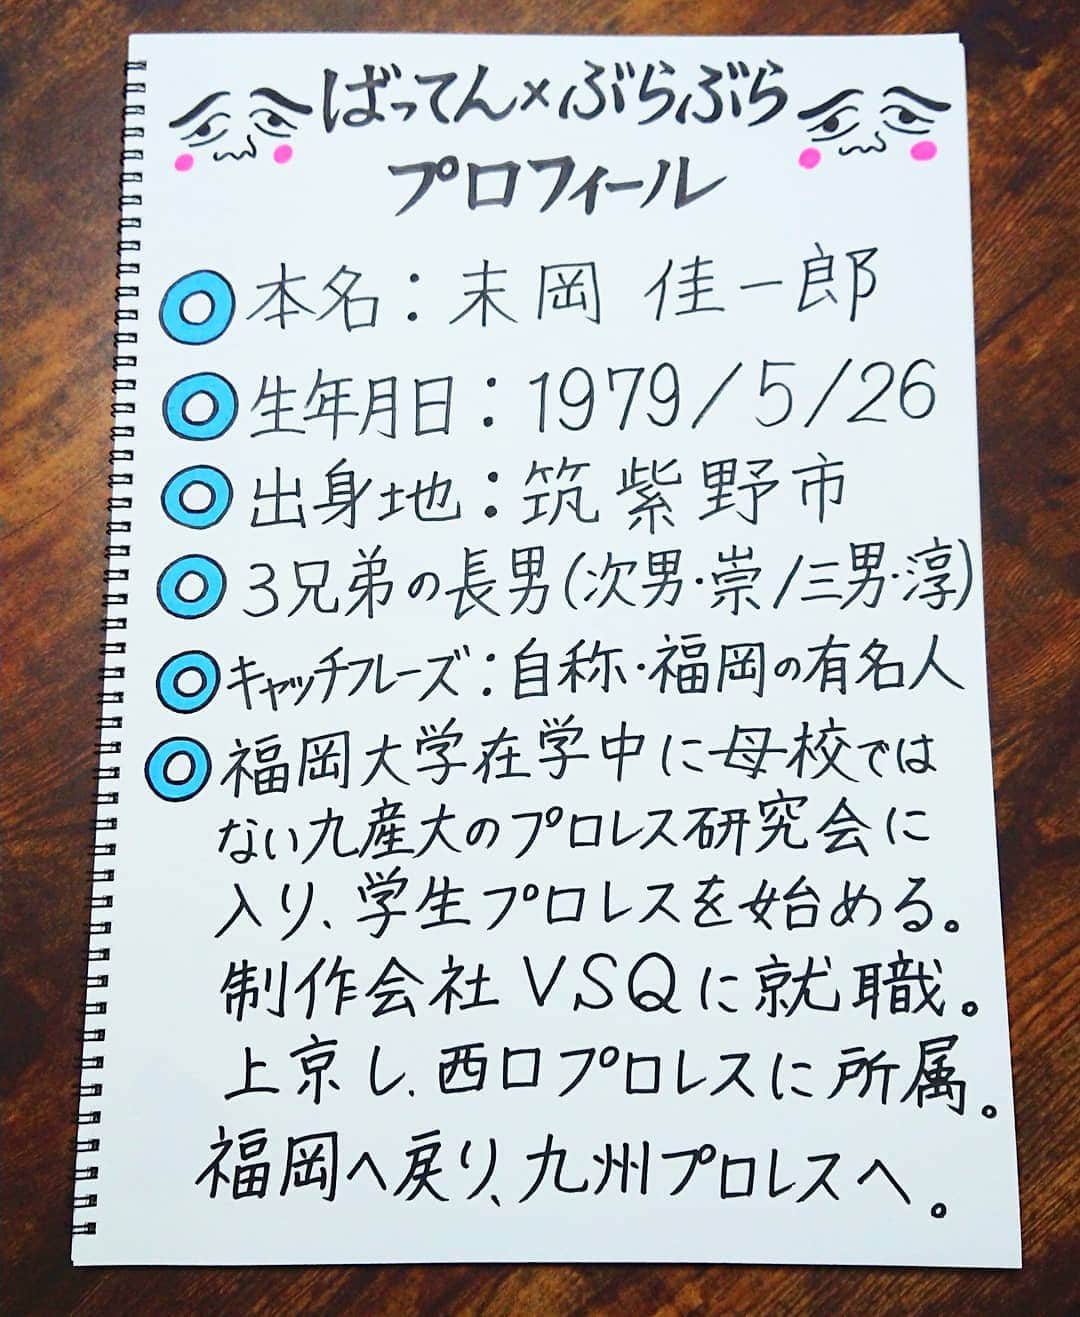 ばってん×ぶらぶら
プロフィール
◎本名：末岡 佳一郎
◎生年月日：1979/5/26
◎出身地：筑紫野市
◎3兄弟の長男(次男・崇/三男・淳)
◎キャッチフレーズ：自称・福岡の有名人
◎福岡大学在学中に母校では
ない九産大のプロレス研究会に
入り、学生プロレスを始める。
制作会社VSQに就職。
上京し、西口プロレスに所属。
福岡へ戻り、九州プロレスへ。